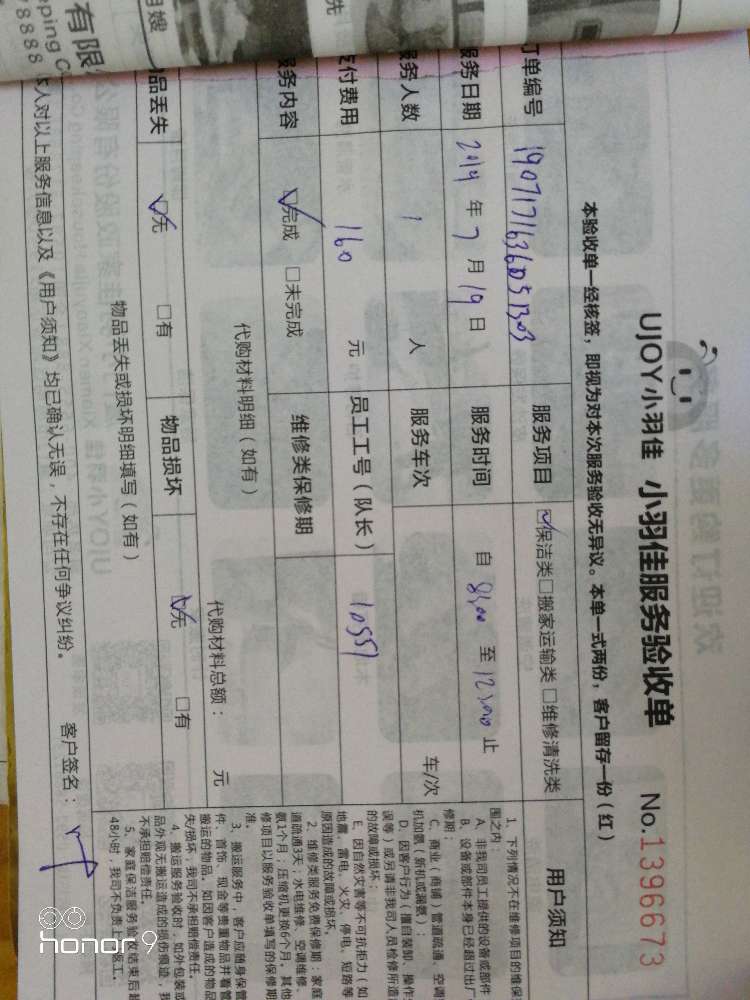 UJOY小羽佳 小羽佳服务验收单 No.1396673
本验收单一经核签，即视为对本次服务验收无异议。本单一式两份，客户留存一份（红）
订单编号 服务项目 ☑保洁类□搬家运输类□维修清洗类
服务日期 2019 年 7 月 19 日 服务时间 自 8:00 至 12:00 止
服务人数 1 人 服务车次 车/次
支付费用 160 元 员工工号（队长） 10551
服务内容 ☑完成 □未完成 维修类保修期
代购材料明细（如有） 代购材料总额： 元
物品丢失 ☑无 □有 物品损坏 ☑无 □有
物品丢失或损坏明细填写（如有）
人对以上服务信息以及《用户须知》均已确认无误，不存在任何争议纠纷。
客户签名：
用户须知
1、下列情况不在维修项目的维保
围之内：
A、非我司员工提供的设备或部件
B、设备或部件本身已经超过出厂
修期；
C、商业（商铺）管道疏通、空调
机加氨（新机或漏氨）；
D、因客户行为（擅自装卸、操作
误等）或另请非我司人员检修所造
的故障或损坏；
E、因自然灾害等不可抗拒力（如
地震、雷电、火灾、停电、短路等
原因造成的故障或损坏。
2、维修类服务免费保修期：家庭
道疏通3天；水电维修、空调维修、
氨1个月；压缩机更换6个月。其他
修项目以服务验收单填写的保修期
准。
3、搬运服务中，客户应随身保管
件、首饰、现金等贵重物品并看管
搬运的物品。如因客户造成的物品
失/损坏，我司不承担赔偿责任。
4、搬运服务验收时，如外包装或
品外观无搬运造成的损伤痕迹，我
不承担赔偿责任。
5、家庭保洁服务验收结束后超
48小时，我司不负责上门返工。
有限
ping C
78888
先
月嫂
honor 9